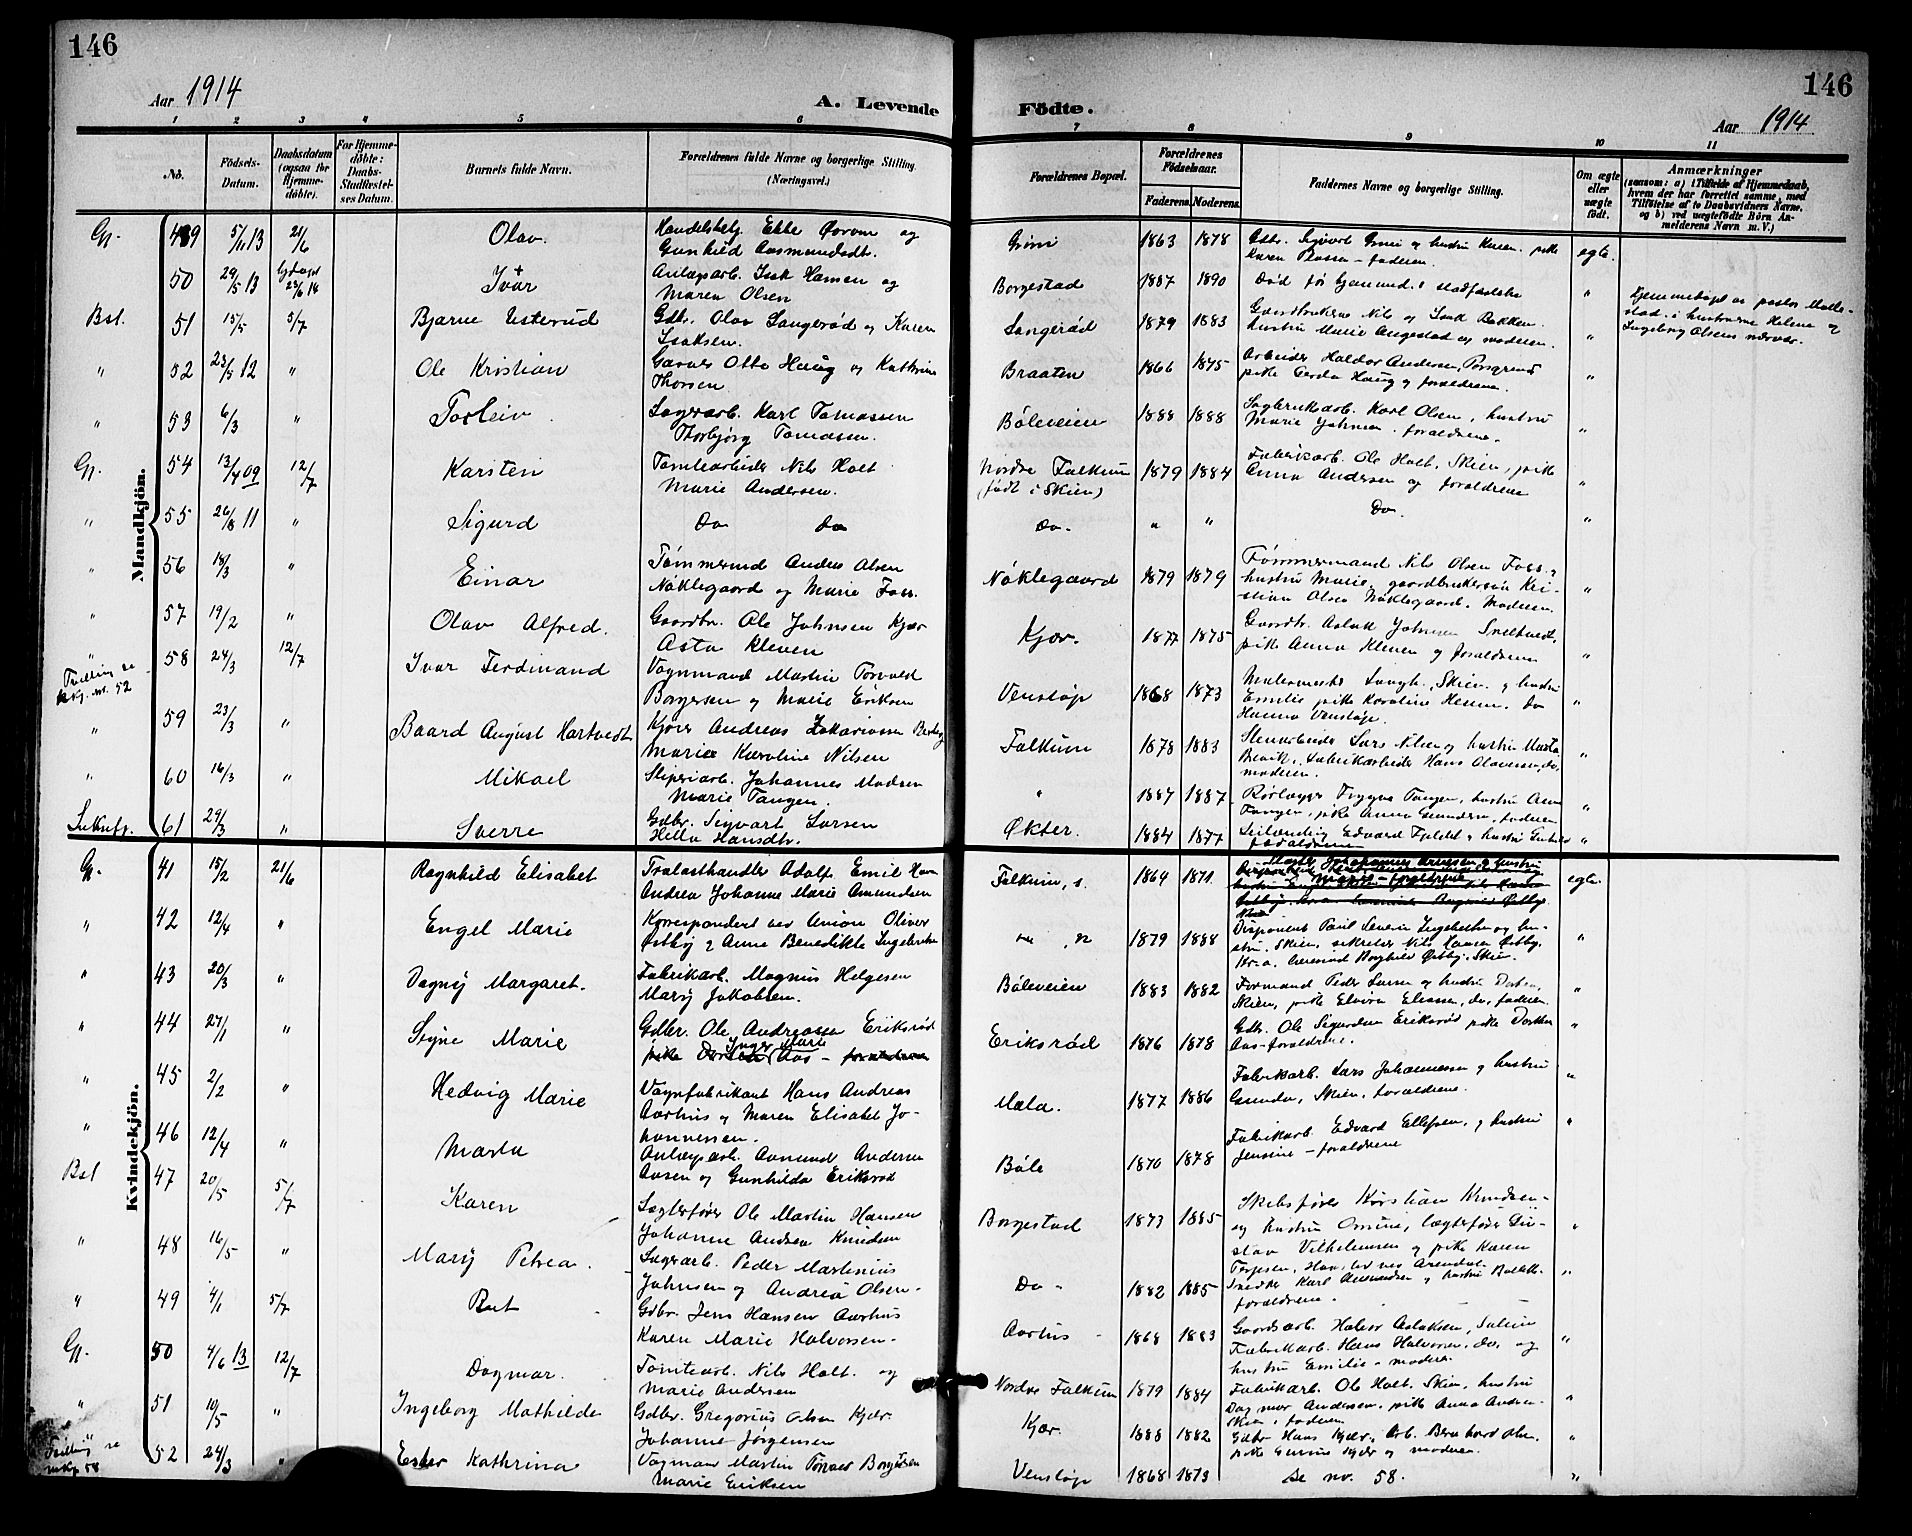 146
146
Aar 1914
A. Levende
Födte.
Aar 1914
1 2 3 4 5 6 7 8 9 10 11
No.
Födsels-Datum.
Daabsdatum (ogsaa for Hjemmedöbte).
For Hjemmedöbte: Daabs-Stadfæstelses Datum.
Barnets fulde Navn.
Forældrenes fulde Navne og borgerlige Stilling. (Næringsvei.)
Forældrenes Bopæl.
Forældrenes Födselsaar.
Faderens. Moderens.
Faddernes Navne og borgerlige Stilling.
Om ægte eller uægte födt.
Anmærkninger
(saasom: a) i Tilfælde af Hjemmedaab, hvem der har forrettet samme, med Tilföielse af to Daabsvidners Navne, og b) ved uægtefödte Börn Anmelderens Navn m. V.)
Mandkjön.
Gp. 49 5/11 13 21/6 Olav. og Gunhild Aasmundsdt. 1863 1878 egte.
50 29/5 13 Ivar Anlægsarb. Isak Hansen og Maren Olsen Borgestad 1887 1890 Død før "
Hjemmedøpt av pastor
Ingeborg Olsens nærvær.
Bst. 51 15/5 5/7 Bjarne Usterud Gdbr. Olav Langerød og Karen Isaksen. Langerød 1879 1883 Gaardbrukerne Nils og Isak Bakken. hustru Marie Angestad og moderen. "
" 52 23/5 12 " Ole Kristian Garver Otto Haug og Kathrine Thorsen Braaten 1866 1875 Arbeider Haldor Andersen, Porsgrund pike Gerda Haug og forældrene. "
" 53 6/3 " Torleiv Sagarb. Karl Tomassen Thorbjørg Tomassen. Böleveien 1888 1888 Sagbruksarb. Karl Olsen, hustru Marie Johnsen. forældrene. "
Gp. 54 13/4 09 12/7 Karsten Tomtearbeider Nils Holt Marie Andersen. Nordre Falkum (født i Skien) 1879 1884 Fabrikarb. Ole Holt, Skien, pike Anna Andersen og forældrene "
" 55 26/8 11 " Sigurd Do do Do. " " Do. "
" 56 18/3 " Einar Tømmermd Anders Olsen Nøklegaard og Marie Foss. Nøklegaard 1879 1879 Tømmermand Nils Olsen Foss, hustru Marie, gaardbrukersøn Kristian Olsen Nøklegaard. Moderen. "
" 57 19/2 " Olav Alfred. Gaardbr. Ole Johnsen Kjær Asta Kleven Kjær. 1877 1875 Gaardbr. Aslak Johnsen pike Anna Kleven og forældrene "
" 58 24/3 12/7 Ivar Ferdinand Vognmand Martin Torvald Borgersen og Marie Eriksen Venstøp 1868 1873 Skien og hustru Emilie pike Karoline do Hanna Venstøp. "
Tvilling se kvkj. nr. 52
" 59 23/3 " Baard August Hartvedt Kjører Andreas Zakariassen Marie Karoline Nilsen Falkum 1878 1883 Stenarbeider Lars Nilsen og hustru Brevik. Fabrikarbeider Hans Olavesen, do, moderen. "
" 60 16/3 " Mikael Sliperiarb. Johannes Madsen Marie Tangen. " 1887 1887 Rørlægger Trygve Tangen, hustru Anna Tangen, pike Anna Gundersen, faderen "
61 29/3 " Sverre Gdbr. Sigvart Larsen Hella Hansdtr. Økter. 1884 1877 Edvard Fjeldet og hustru forældrene "
Kvindekjön.
Gp. 41 15/2 21/6 Ragnhild Elisabet Trælasthandler Adolf Emil Andrea Johanne Marie Amundsen Falkum, s. 1864 1871. Johannes og hustru Maren - forældrene egte.
" 42 12/4 " Engel Marie Korrespondent ved Union Oliver Østby og Anna Benedikte Ingebretsen " , n 1879 1888 Disponent Paul Severin Ingebretsen og hustru. Skien, sekretær Nils Hansen Østby. Kr.a. Borghild Østby. Skien. "
" 43 20/3 " Dagny Margaret. Fabrikarb. Magnus Helgesen Mary Jakobsen. Böleveien 1883 1882 Formand Peder Larsen og hustru Skien, pike Elvira Eliassen, do, faderen. "
" 44 27/1 " Signe Marie Gdbr. Ole Andreassen Eriksrød Inger Marie Aas Eriksrød 1876 1878 Gdbr. Ole Sigurdsen Eriksrød pike Dorthea Aas - forældrene. "
" 45 2/2 " Hedvig Marie Vognfabrikant Hans Andreas Aarhus og Maren Elisabet Johannessen. Mæla. 1877 1886 Fabrikarb. Lars Johannessen og hustru Gunda, Skien, forældrene. "
" 46 12/4 " Marta Anlægsarb. Aanund Andersen Aasen og Gunhilda Eriksrød Böle 1870 1878 Fabrikarb. Edvard Ellefsen, og hustru Jensine - forældrene "
Bst 47 20/5 5/7 Karen Sagfører Ole Martin Hansen Johanne Andrea Knudsen Borgestad 1873 1885 Skibsfører Kristian Knudsen og hustru Vilhelmsen og pike Karen Terjesen, ved Arendal. "
" 48 16/5 " Mary Petrea. Sagarb. Peder Martinius Johnsen og Andrea Olsen. Do. 1882 1885 Snedker Karl Aasmundsen og hustru forældrene. "
" 49 4/1 5/7 Gdbr. Jens Hansen Aarhus Karen Marie Halvorsen. Aarhus 1868 1883 Gaardsarb. Halvor Aslaksen, Fabrikarb. Hans Halvorsen, do, og hustru Emilie - moderen. "
Gp. 50 4/6 13 12/7 Dagmar. Tomtearb. Nils Holt. og Marie Andersen Nordre Falkum 1879 1884 Fabrikarb. Ole Holt. Skien, hustru Dagmar Andersen, pike Anna Andersen Skien, faderen "
" 51 10/5 " Ingeborg Mathilde Gdbr. Gregorius Olsen Kjær. Johanne Jørgensen Kjær. 1888 1882 Gdbr Hans Kjær, Arb. Bernhard Olsen, pike Gunnie Kjær og moderen. "
" 52 24/3 " Ester Kathrina Vognman Martin Torvald Borgersen Marie Eriksen Venstøp 1868 1873 Se nr. 58. "
Tvilling se mkj 58